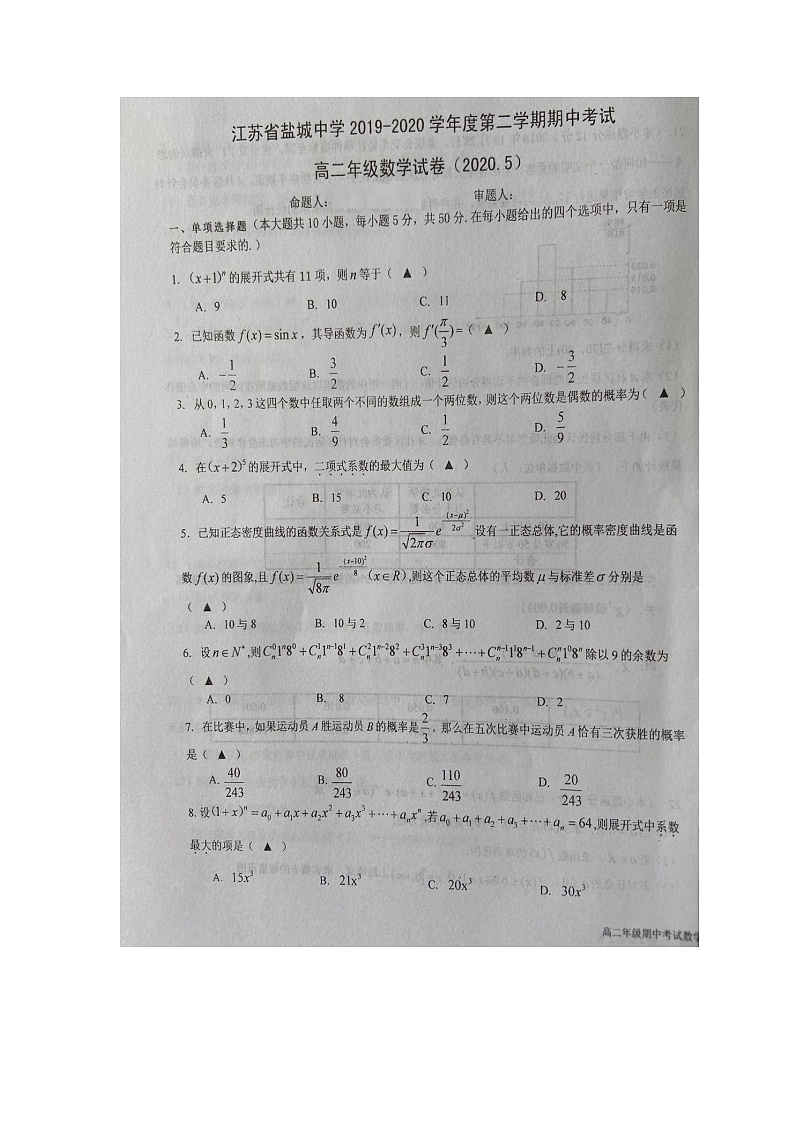 江苏省盐城中学 2019-2020 学年度第二学期期中考试
高二年级数学试卷（2020.5）
命题人： 审题人：
一、单项选择题（本大题共 10 小题，每小题 5 分，共 50 分.在每小题给出的四个选项中，只有一项是
符合题目要求的.）
1. (x+1)^n 的展开式共有 11 项，则 n 等于（ ▲ ）
A. 9 B. 10 C. 11 D. 8
2. 已知函数 f(x)=sin x，其导函数为 f′(x)，则 f′(π/3)=（ ▲ ）
A. -1/2 B. 3/2 C. 1/2 D. -3/2
3. 从 0，1，2，3 这四个数中任取两个不同的数组成一个两位数，则这个两位数是偶数的概率为（ ▲ ）
A. 1/3 B. 4/9 C. 1/2 D. 5/9
4. 在(x+2)^5 的展开式中，二项式系数的最大值为（ ▲ ）
A. 5 B. 15 C. 10 D. 20
5. 已知正态密度曲线的函数关系式是 f(x)=1/(√2πσ) e^(-(x-μ)²/2σ²).设有一正态总体,它的概率密度曲线是函
数 f(x) 的图象,且 f(x)=1/√8π e^(-(x-10)²/8) (x∈R),则这个正态总体的平均数 μ 与标准差 σ 分别是
（ ▲ ）
A. 10 与 8 B. 10 与 2 C. 8 与 10 D. 2 与 10
6. 设 n∈N*,则 C_n^0 1^n 8^0 + C_n^1 1^(n-1) 8^1 + C_n^2 1^(n-2) 8^2 + C_n^3 1^(n-3) 8^3 + ⋯ + C_n^(n-1) 1^1 8^(n-1) + C_n^n 1^0 8^n 除以 9 的余数为
（ ▲ ）
A. 0 B. 8 C. 7 D. 2
7. 在比赛中，如果运动员 A 胜运动员 B 的概率是 2/3，那么在五次比赛中运动员 A 恰有三次获胜的概率
是（ ▲ ）
A. 40/243 B. 80/243 C. 110/243 D. 20/243
8. 设(1+x)^n = a_0 + a_1x + a_2x^2 + a_3x^3 + ⋯ + a_nx^n,若 a_0 + a_1 + a_2 + a_3 + ⋯ + a_n = 64,则展开式中系数
最大的项是（ ▲ ）
A. 15x^3 B. 21x^3 C. 20x^3 D. 30x^3
高二年级期中考试数